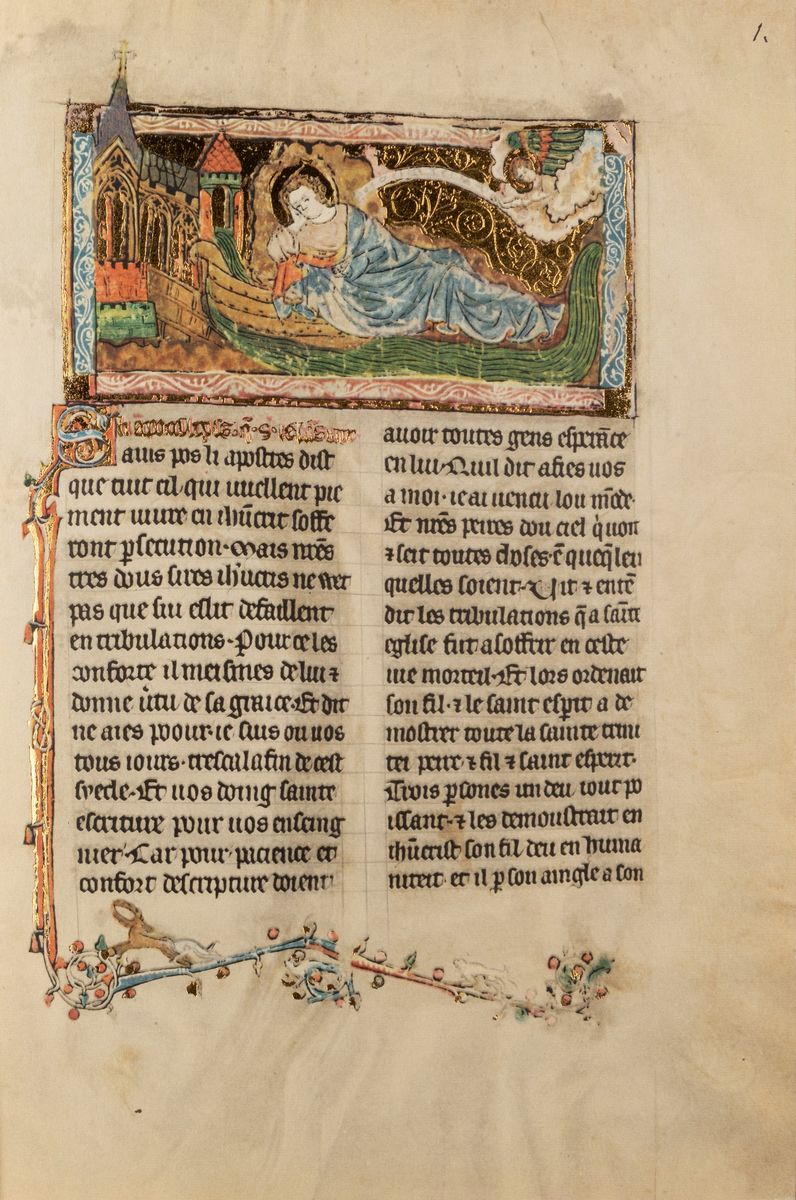 1.
S
auis pos li apostres dist
que tuit cil qui uuellent pie
ment uiure en ihūcrit soffe
ront ꝑsecution. Mais nr̄es
tres dous sires ih'ucris ne wet
pas que sui eslit defaillent
en tribulations. Pour ce les
conforte il meismes de lui ⁊
donne u̾tu de sa grace. Et dit
ne aies poour. ie suis ou uos
tous iours. tresca la fin de cest
syecle. Et uos doing sainte
escriture pour uos enseing
nier. Car pour pacience et
confort descripture doient
auoir toutes gens esperāce
en lui. Quil dit afies uos
a moi. ie ai uencu lou mōde.
Et nr̄es peires dou ciel q'uoit
⁊ seit toutes choses. ē queq̄leu
quelles soient. Uit ⁊ entē
dit les tribulations q̄ a saīte
eglise fut a soffrir en ceste
uie morteil. Et lors ordenait
son fil. ⁊ le saint esp̄rit a de
mostrer toute la sainte trini
tei peire ⁊ fil ⁊ saint esperit.
Trois ꝑsones un deu. tout po
issant. ⁊ les demoustrait en
ihūcrist son fil. deu en huma
niteit. et il ꝑ son aingle a son